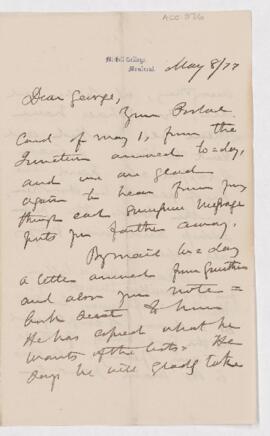 ACC 976
McGill College,
Montreal.
May 8/77
Dear George,
Your Postal
Card of May 1, from the
Junction arrived to=day,
and we are glad
again to hear from you
though each successive message
puts you farther away.
By mail to=day
a letter arrived from
and also your note=
book sent to him
He has copied what he
wants of the lists. He
says he will gladly take